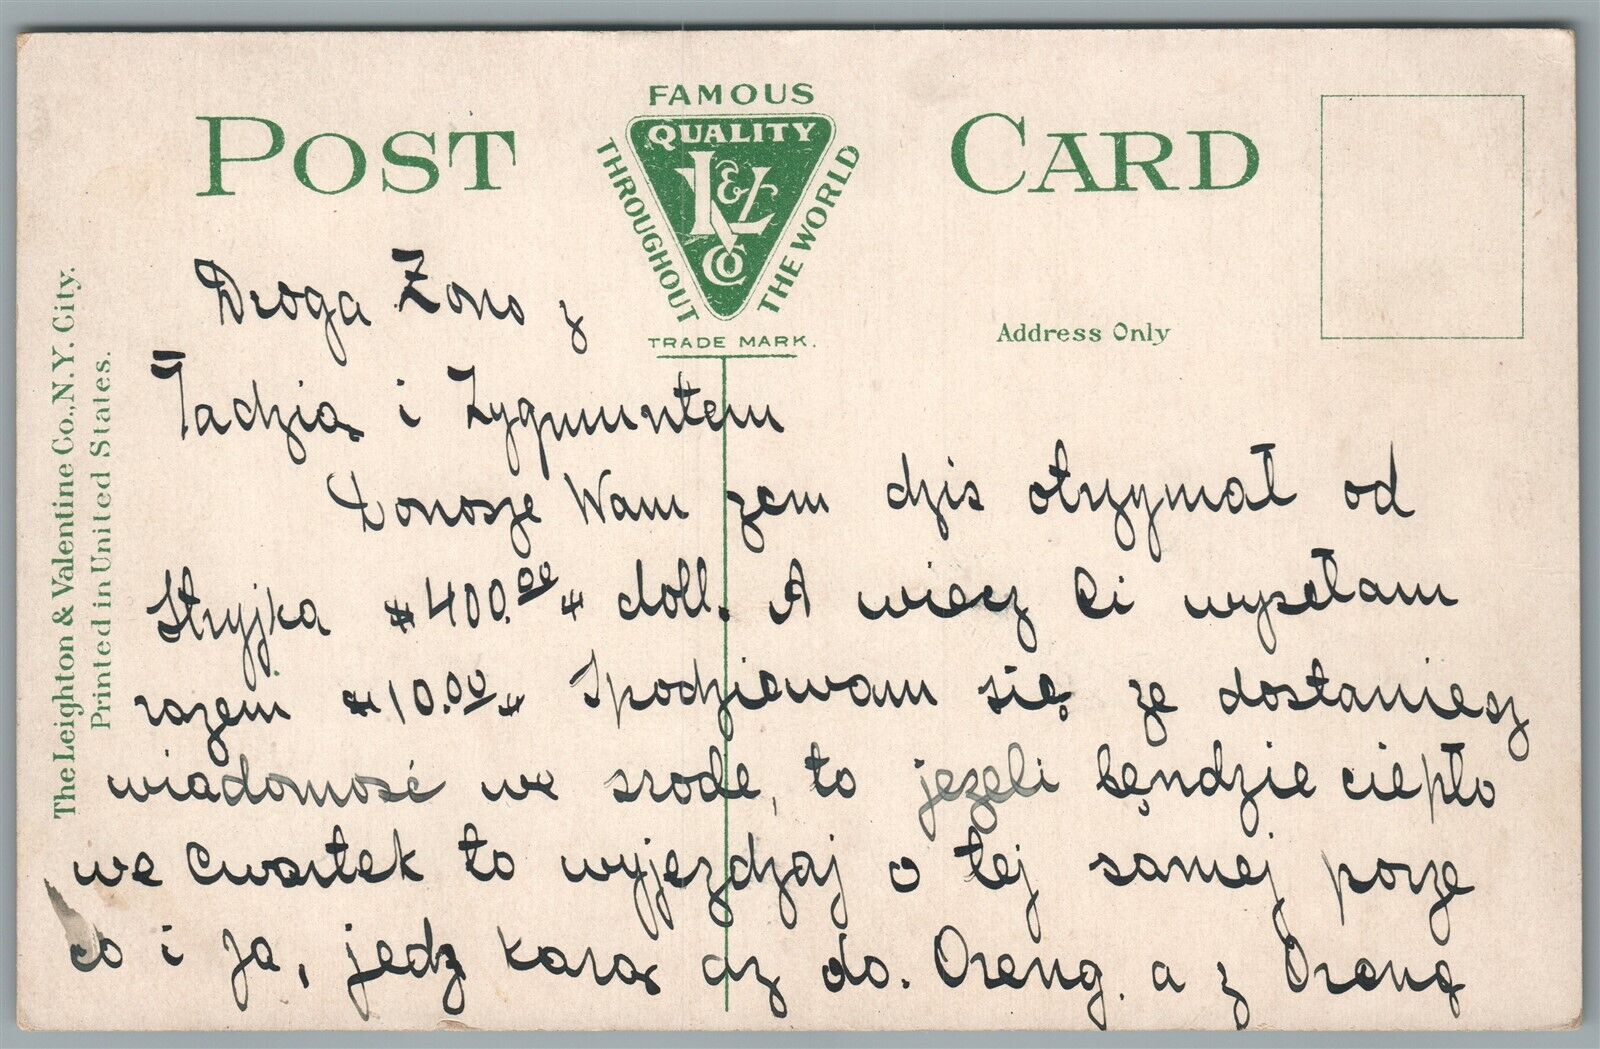 POST CARD
FAMOUS
QUALITY
L&V
CO
THROUGHOUT THE WORLD
TRADE MARK.
Address Only
The Leighton & Valentine Co., N.Y. City.
Printed in United States.
Droga Żono z
Tadzią i Zygmuntem
Donosze Wam zem dzis otrzymał od
Stryjka #400.00# doll. A wiecz Ci wysełam
razem #10.00# Spodziewam się ze dostaniesz
wiadomość we srode, to jezeli bęndzie ciepło
we Cwartek to wyjezdzaj o tej samej porze
co i ja, jedz karą az do. Oreng. a z Oreng